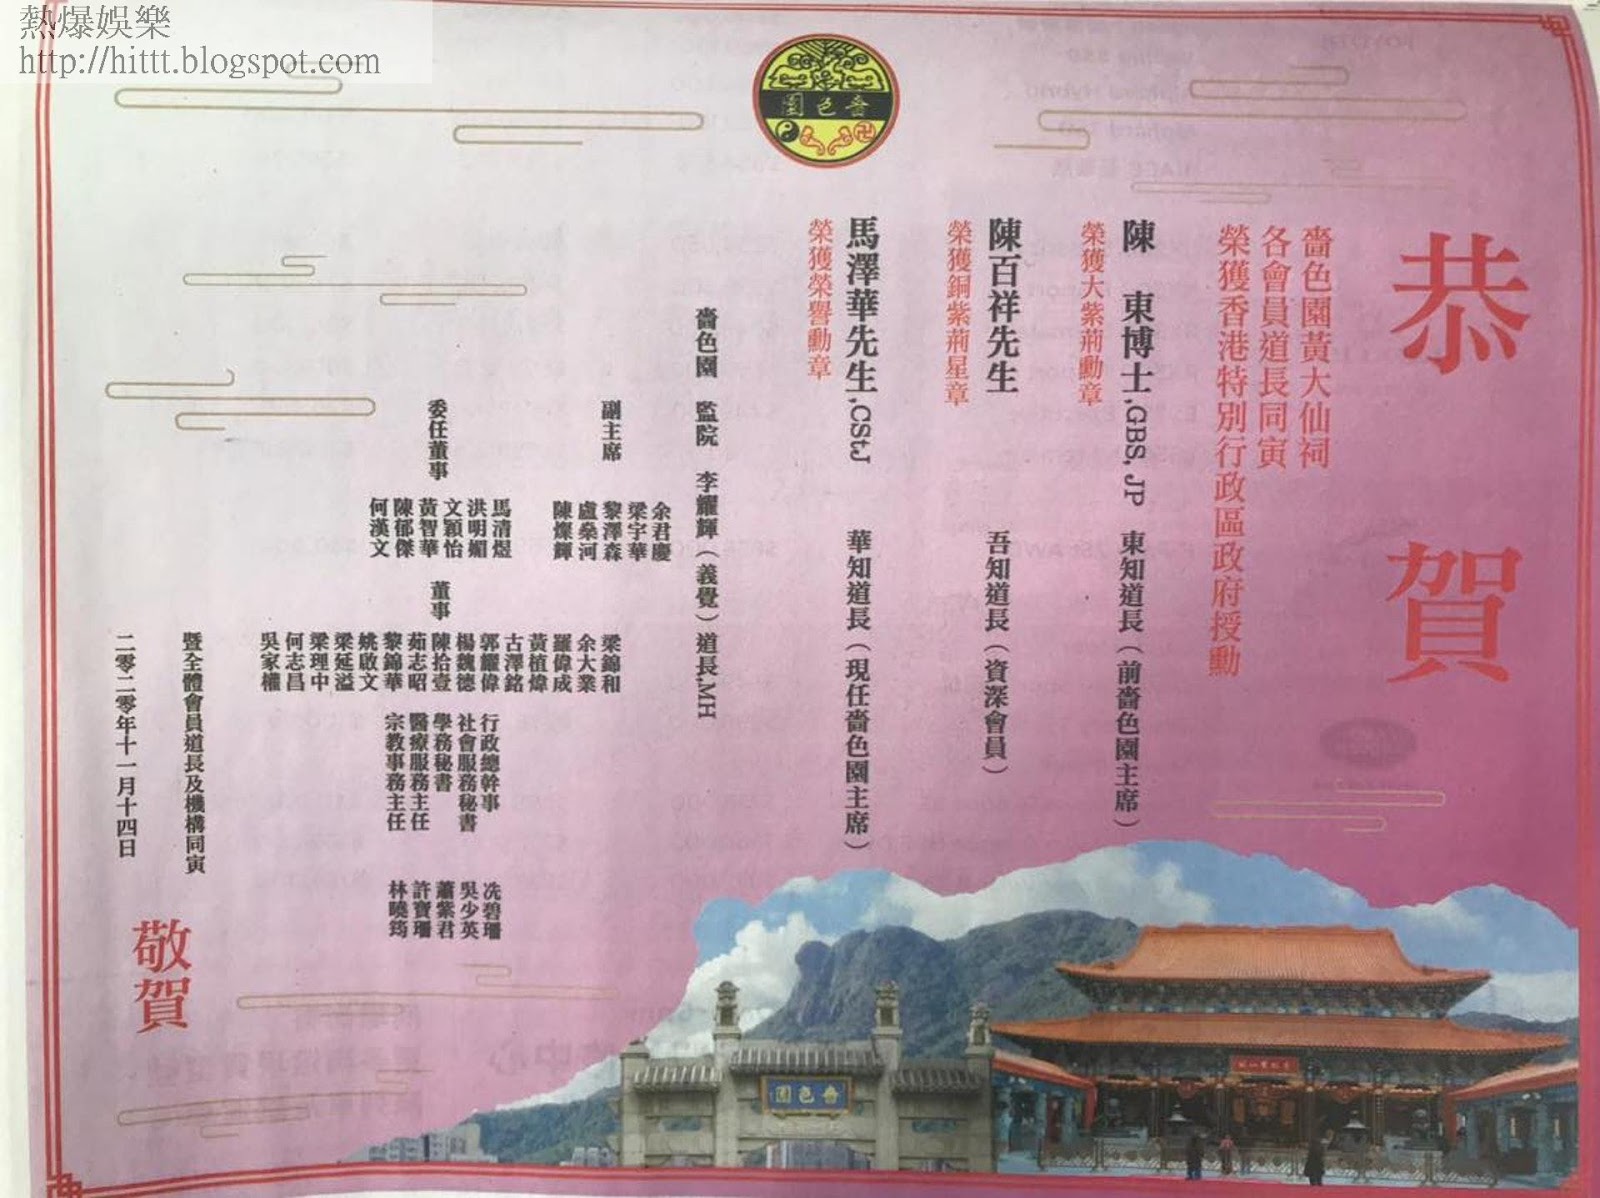 熱爆娛樂
http://hittt.blogspot.com
嗇色園
恭賀
嗇色園黃大仙祠
各會員道長同寅
榮獲香港特別行政區政府授勳
陳 東博士,GBS, JP 東知道長（前嗇色園主席）
榮獲大紫荊勳章
陳百祥先生 吾知道長（資深會員）
榮獲銅紫荊星章
馬澤華先生,CStJ 華知道長（現任嗇色園主席）
榮獲榮譽勳章
嗇色園 監院 李耀輝（義覺）道長,MH
副主席
余君慶
梁宇華
黎澤森
盧燊河
陳燦輝
委任董事
馬清煜
洪明媚
文穎怡
黃智華
陳郁傑
何漢文
董事
梁錦和
余大業
羅偉成
黃植煒
古澤銘
郭耀偉
楊魏德
陳拾壹
茹志昭
黎錦華
姚啟文
梁延溢
梁理中
何志昌
吳家權
行政總幹事 冼碧珊
社會服務秘書 吳少英
學務秘書 蕭紫君
醫療服務主任 許寶珊
宗教事務主任 林曉筠
暨全體會員道長及機構同寅
二零二零年十一月十四日
敬賀
嗇色園